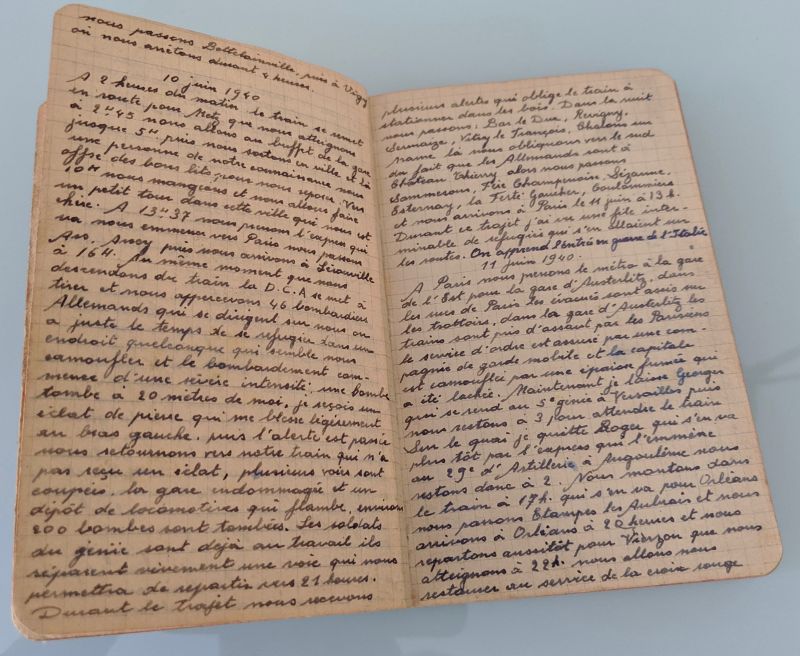 nous passons Bettelainville, puis à Vigy
où nous arrêtons durant 4 heures.
10 juin 1940
A 2 heures du matin, le train se remet
en route pour Metz que nous atteignons
à 2H45 nous allons au buffet de la gare
jusque 5H puis nous sortons en ville et là
une personne de notre connaissance nous
offre des bons lits pour nous reposer. Vers
10H nous mangeons et nous allons faire
un petit tour dans cette ville qui nous est
chère. A 13H37 nous prenons l'express qui
va nous emmener vers Paris nous passons
Ars, Ancy puis nous arrivons à Lérouville
à 16H. Au même moment que nous
descendons du train la D.C.A se met à
tirer et nous appercevons 46 bombardiers
Allemands qui se dirigent sur nous on
a juste le temps de se refugier dans un
endroit quelconque qui semble nous
camoufler et le bombardement com-
mence d'une sévère intensité: une bombe
tombe à 20 mètres de moi, je reçois un
éclat de pierre qui me blesse légèrement
au bras gauche. puis l'alerte est passée
nous retournons vers notre train qui n'a
pas reçu un éclat, plusieurs voies sont
coupées, la gare endommagée et un
dépôt de locomotives qui flambe, environ
200 bombes sont tombées. Les soldats
du génie sont déjà au travail ils
réparent vivement une voie qui nous
permettra de repartir vers 21 heures.
Durant le trajet nous recevons
plusieurs alertes qui oblige le train à
stationner dans les bois. Dans la nuit
nous passons: Bar le Duc, Revigny.
Sermaize, Vitry le François, Chalons sur
marne là nous obliquons vers le sud
du fait que les Allemands sont à
Château Thierry, alors nous passons
Sommesous, Fère Champenoise, Sézanne,
Esternay, la Ferté Gaucher, Coulommiers
et nous arrivons à Paris le 11 juin à 13h.
Durant ce trajet j'ai vu une file inter-
minable de refugiés qui s'en allaient sur
les routes. On apprend l'entrée en guerre de l'Italie
11 juin 1940.
A Paris nous prenons le métro à la gare
de l'Est pour la gare d'Austerlitz, dans
les rues de Paris les évacués sont assis sur
les trottoirs, dans la gare d'Austerlitz les
trains sont pris d'assaut par les Parisiens
le service d'ordre est assuré par une com-
pagnie de garde mobile et la capitale
est camouflée par une épaisse fumée qui
a été lachée. Maintenant je laisse Georges
qui se rend au 5e génie à Versailles puis
nous restons à 3 pour attendre le train
Sur le quai je quitte Roger qui s'en va
plus tôt par l'express qui l'emmène
au 29e d'Artillerie à Angoulême nous
restons donc à 2. Nous montons dans
le train à 17h. qui s'en va pour Orléans
nous passons Etampes les Aubrais et nous
arrivons à Orléans à 20 heures et nous
repartons aussitôt pour Vierzon que nous
atteignons à 22h. nous allons nous
restaurer au service de la croix rouge